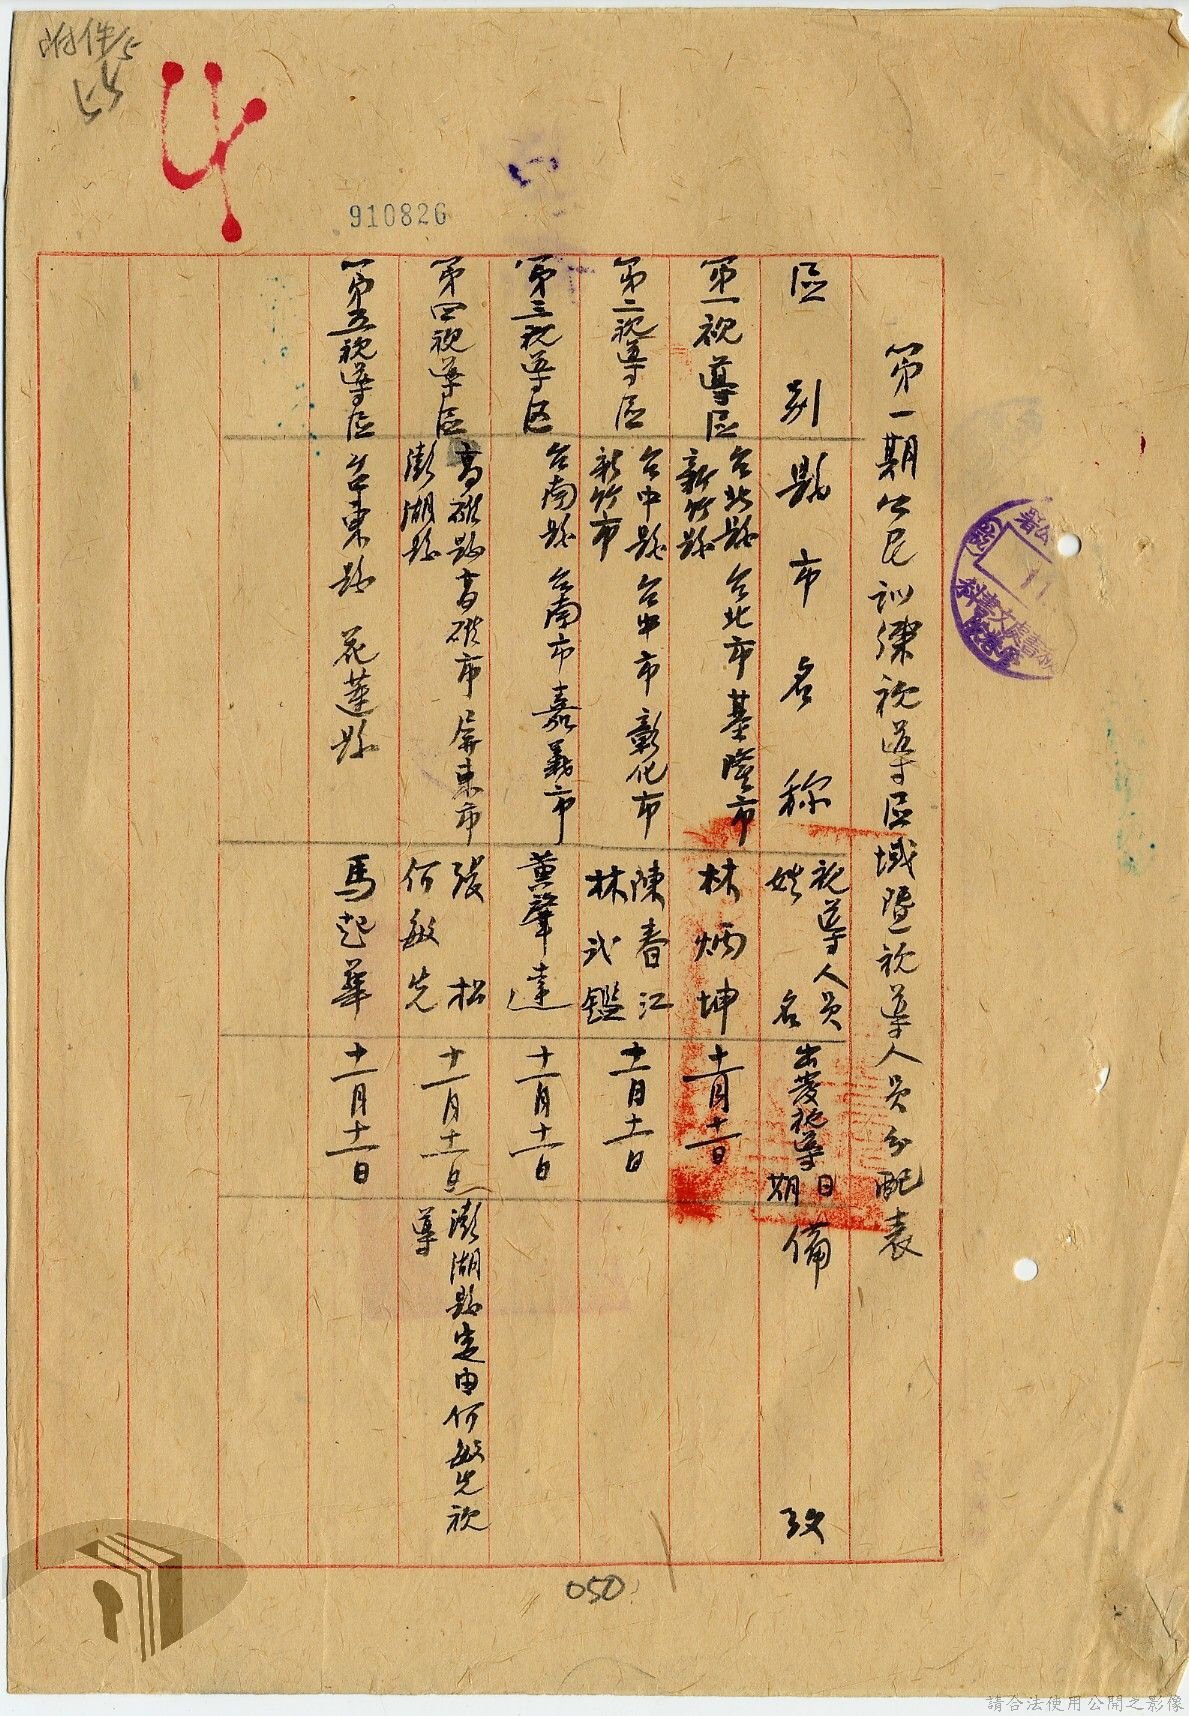 附件5
910826
第一期公民訓練視導區域暨視導人員分配表
區別
縣市名称
視導人員
姓名
出發視導日
期
備攷
第一視導區
台北縣台北市基隆市
新竹縣
林炳坤
十一月十一日
第二視導區
台中縣台中市彰化市
新竹市
陳春江
林武鑑
十一月十一日
第三視導区
台南縣台南市嘉義市
黃肇達
十一月十一日
第四視導區
高雄縣高雄市屏東市
澎湖縣
張松
何敏先
十一月十一日
澎湖縣定由何敏先視
導
第五視導區
台東縣花蓮縣
馬起華
十一月十一日
050
請合法使用公開之影像